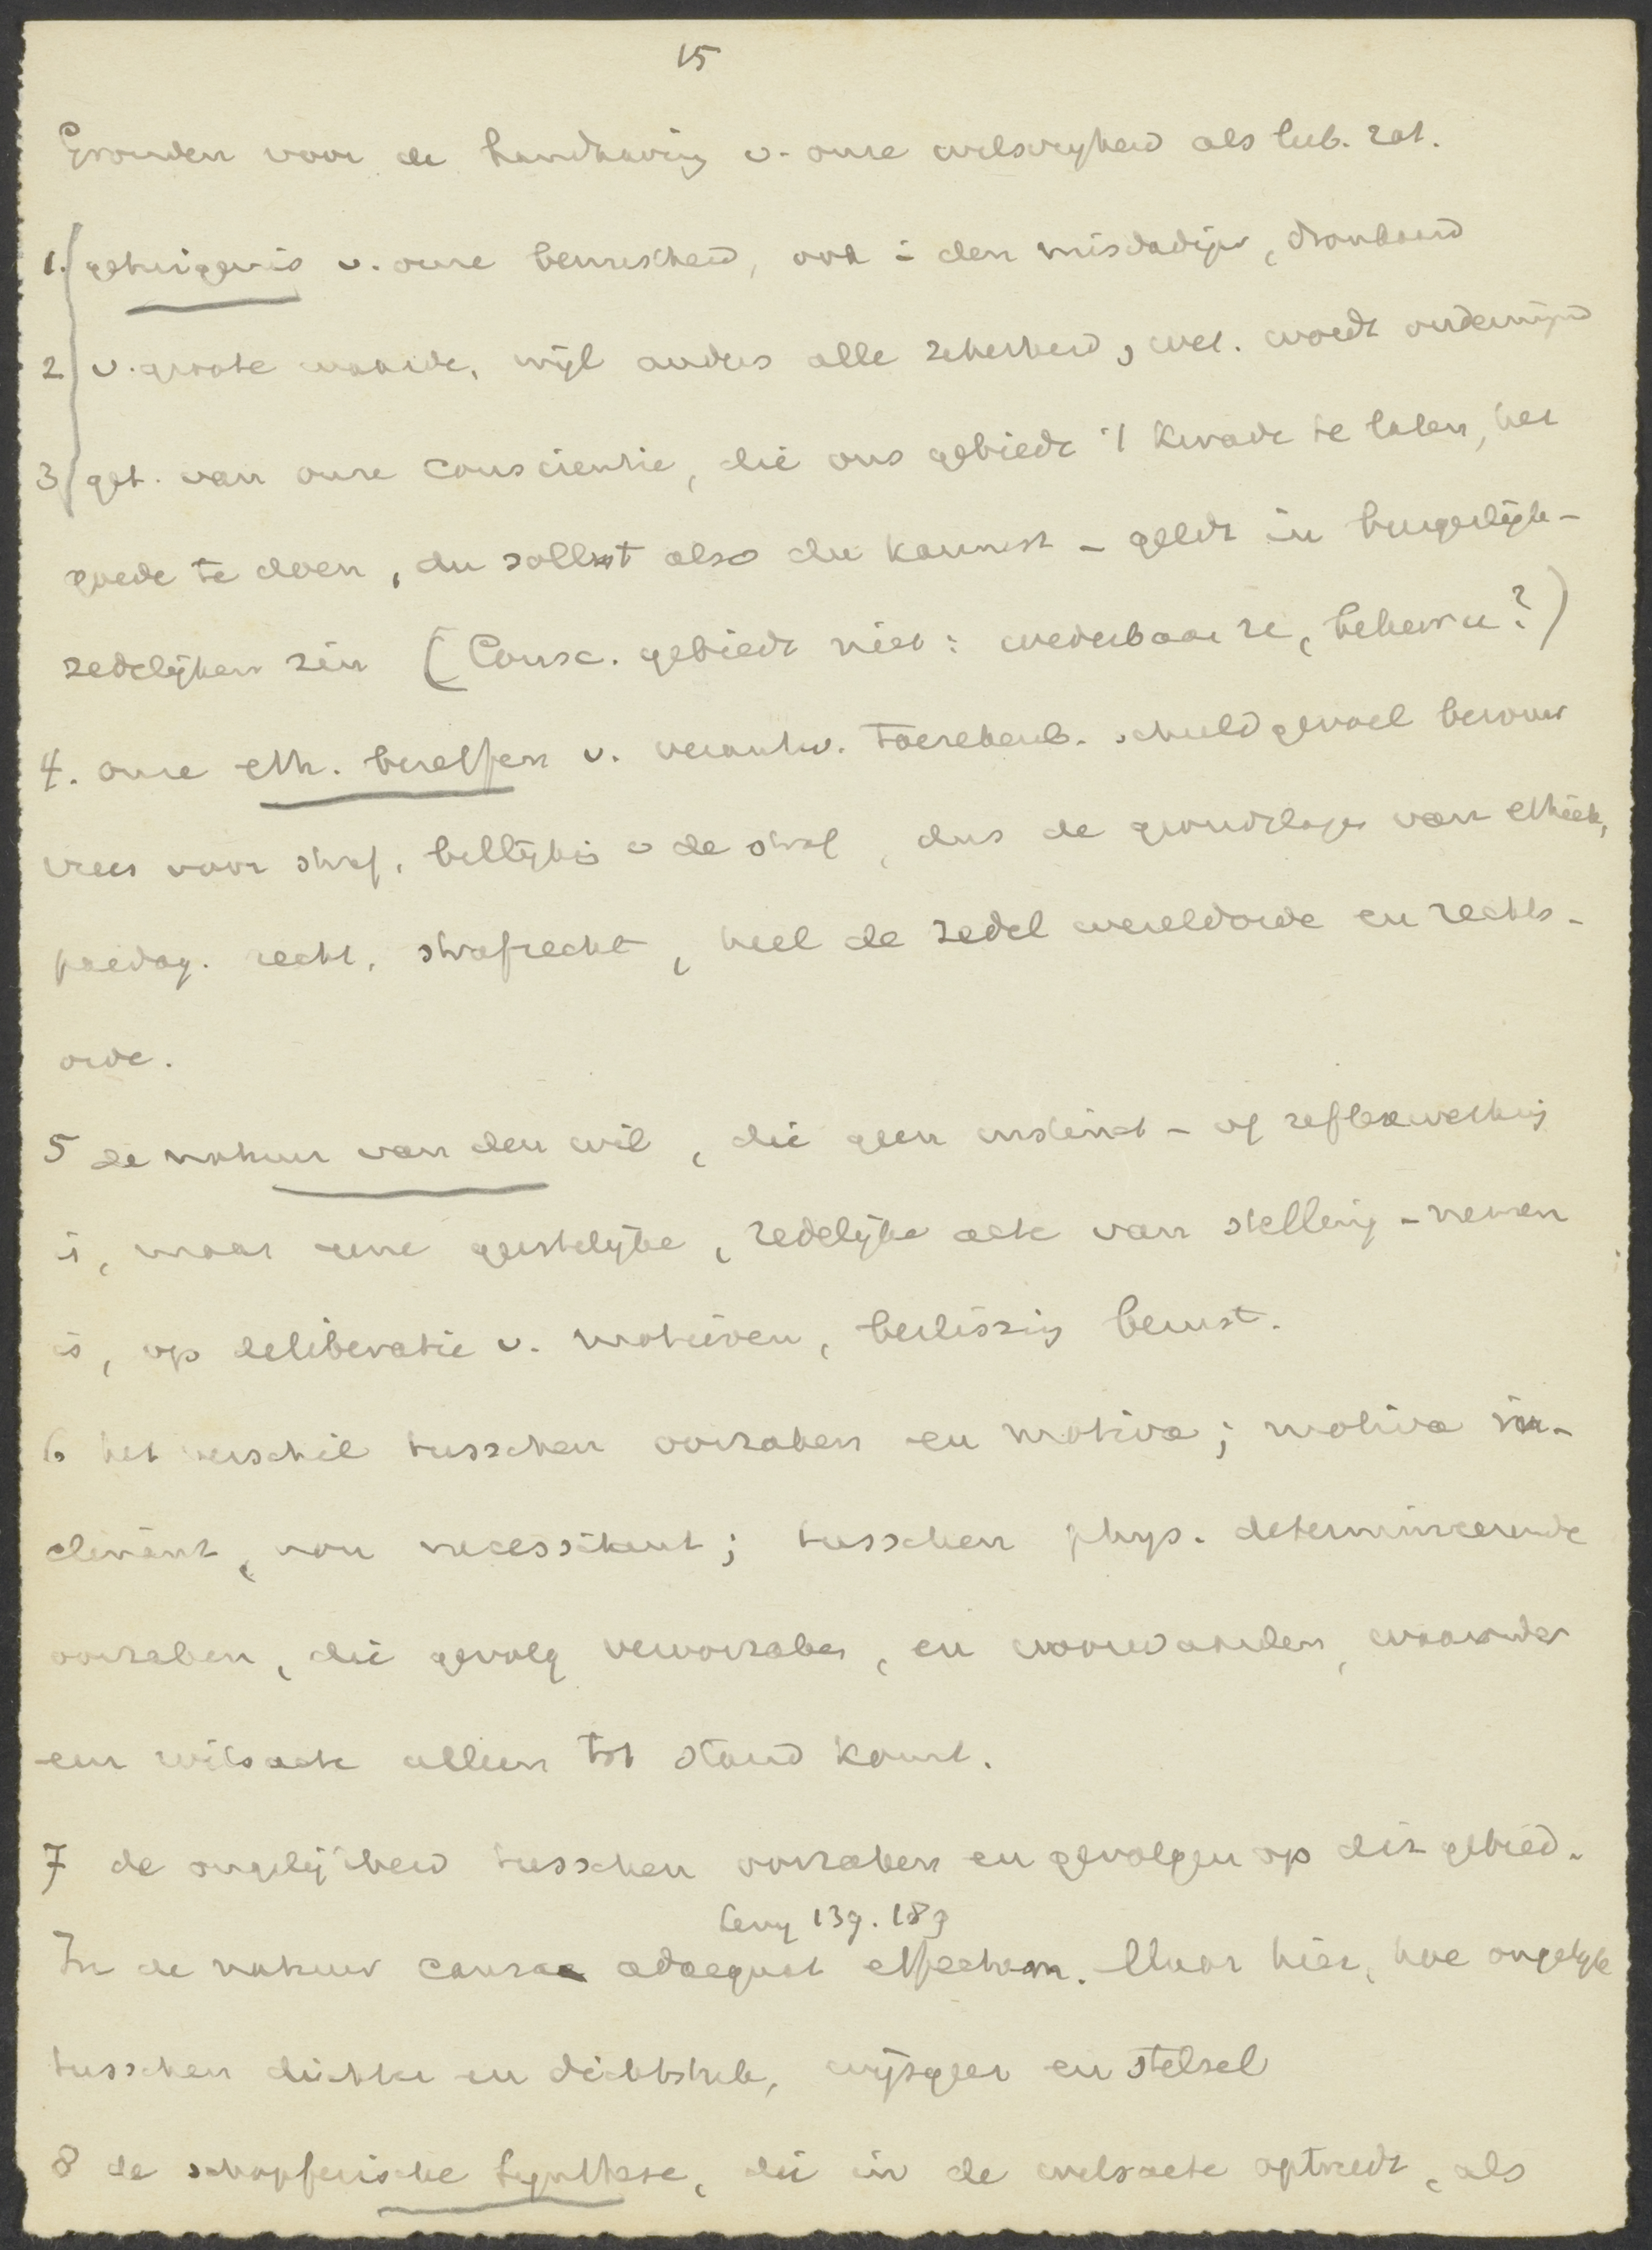 15
Gronden voor de handhaving v. onze wilsvrijheid als lub. rat.
1. getuigenis v. onze bewustheid, ook i den misdadiger, dronkaard
2 v. groote waarde, wijl anders alle zekerheid, wet. wordt ondermijnd
3 get. van onze conscientie, die ons gebiedt 't kwade te laten, het
goede te doen, du sollst also du kannst - geldt in burgerlijk-
zedelijken zin (Consc. gebiedt niet: wederbaar u, bekeer u?)
4. onze eth. beseffen v. verantw. toerekenb. schuldgevoel berouw
vrees voor straf, billijkh v de straf, dus de grondslagen van ethiek,
paedag. recht, strafrecht, heel de zedel wereldorde en rechts-
orde.
5 de natuur van den wil, die geen instinct- of reflexwerking
is, maar eene geestelijke, redelijke acte van stelling-nemen
is, op deliberatie v. motieven, beslissing berust.
6 het verschil tusschen oorzaken en motiva; motiva in-
clinant, non necessitant; tusschen phys. determineerende
oorzaken, die gevolg veroorzaken, en voorwaarden, waaronder
een wilsacte alleen tot stand komt.
7 de ongelijkheid tusschen oorzaken en gevolgen op dit gebied.
Levy 139. 189
In de natuur causa adaequat effectum. Maar hier, hoe ongelijk
tusschen dichter en dichtstuk, wijsgeer en stelsel
8 de schöpferische Synthese, die in de wilsacte optreedt, als